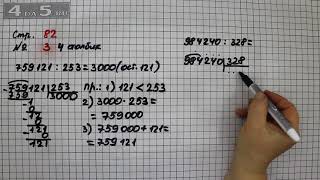 4 ДА 5
Стр. 82
№ 3 4 столбик
759121 : 253 = 3000 (ост. 121)
-759121 | 253
759 | 3000
-1
0
-12
0
-121
0
121
пр.: 1) 121 < 253
2) 3000 · 253 =
= 759000
3) 759000 + 121 =
= 759121
984240 : 328 =
984240 | 328